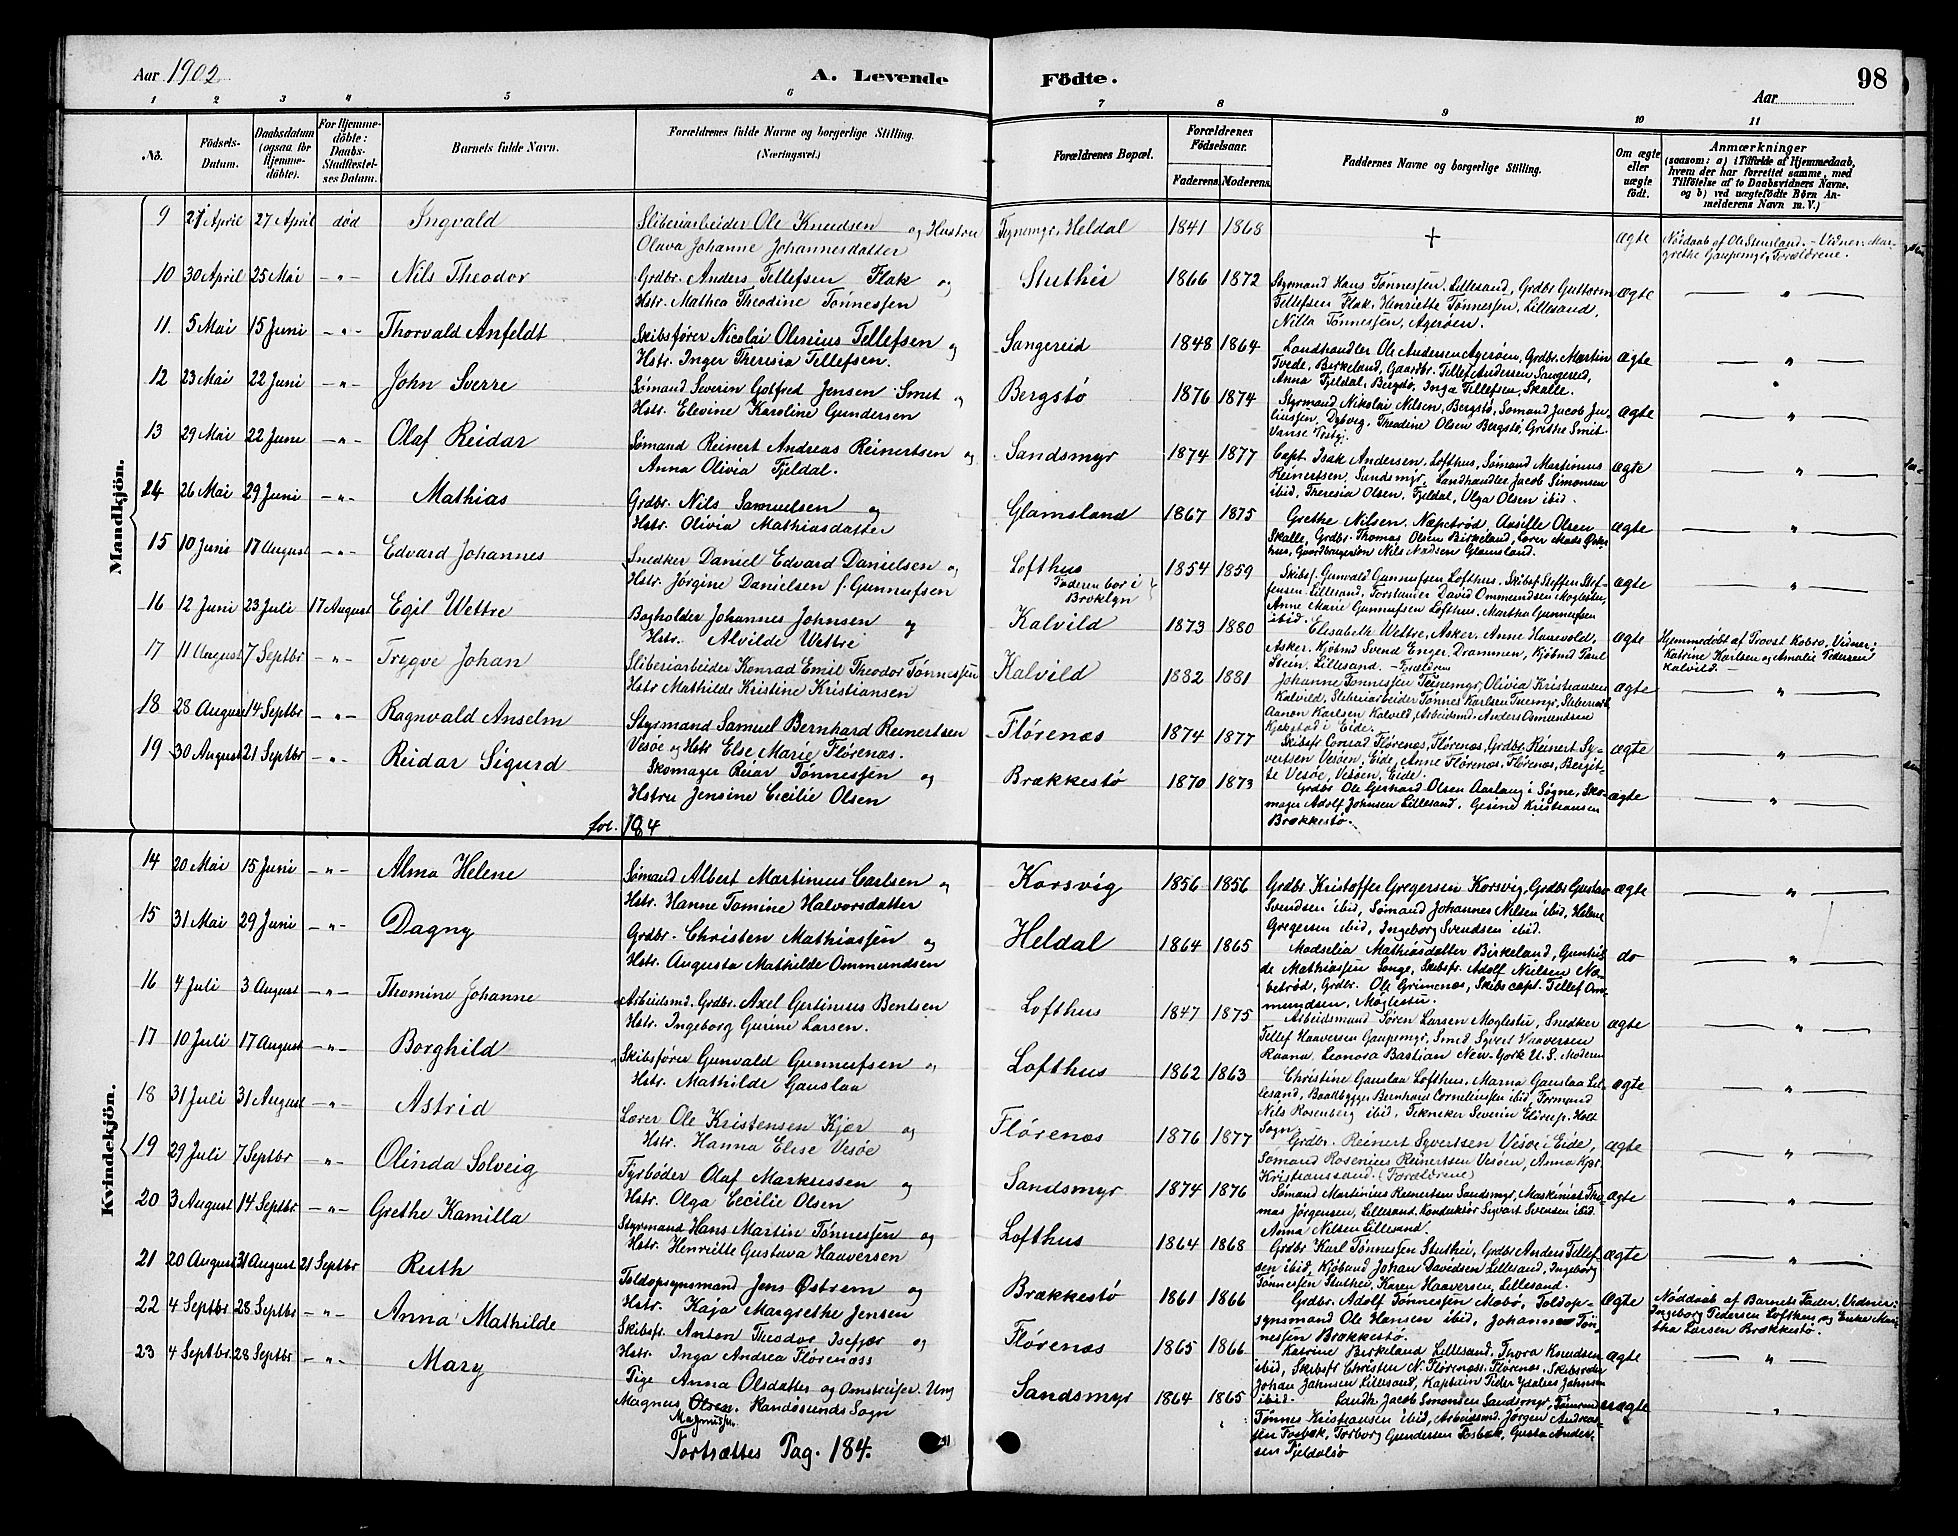 Aar 1902
A. Levende Födte.
Aar
98
1 2 3 4 5 6 7 8 9 10 11
No.
Födsels-Datum.
Daabsdatum (ogsaa for Hjemme-döbte).
For Hjemme-döbte: Daabs-Stadfæstel-ses Datum.
Barnets fulde Navn.
Forældrenes fulde Navne og borgerlige Stilling. (Næringsvei.)
Forældrenes Bopæl.
Forældrenes Födselsaar.
Faderens. Moderens.
Faddernes Navne og borgerlige Stilling.
Om ægte eller uægte födt.
Anmærkninger
(saasom: a) i Tilfælde af Hjemmedaab, hvem der har forrettet samme, med Tilföielse af to Daabsvidners Navne, og b) ved uægtefödte Börn An-melderens Navn m. V.)
Mandkjön.
9 27 April 27 April død Ingvald
Sliberiarbeider Ole Knudsen og Hustru
Olava Johanne Johannesdatter
Heldal 1841 1868 + ægte
Nødaab af Ole Stensland. - Vidner: Mar-
grethe Gaupemyr, Forældrene.
10 30 April 25 Mai -"- Nils Theodor
Grdbr. Anders Tellefsen Flak og
Hstr. Mathea Theodine Tønnesfen
Stuthei 1866 1872
Styrmand Hans Tønnesfen, Lillesand, Grdbr Guttorm
Tellefsen Flak, Henriette Tønnesfen, Lillesand,
Nilla Tønnesfen, Agerøen.
ægte — " —
11. 5 Mai 15 Juni -"- Thorvald Anfeldt
Skibsfører Nicolai Olenius Tellefsen og
Hstr. Inger Theresia Tellefsen.
Sangereid 1848 1864
Landhandler Ole Andersen Agerøen, Grdbr. Martin
Tvede, Birkeland, Gaardbr. Tellef Andersen Sangereid,
Anna Fjeldal, Bergstø, Inga Tellefsen, Skalle.
ægte — " —
12 23 Mai 22 Juni -"- John Sverre
Sømand Severin Gotfred Jensen Smit og
Hstr. Elevine Karoline Gundersen
Bergstø 1876 1874
Styrmand Nikolai Nilsen, Bergstø, Sømand Jacob Ju-
liusfen, Dybvig, Theodine Olsen Bergstø, Grethe Smit
ægte — " —
13 29 Mai 22 Juni -"- Olaf Reidar
Sømand Reinert Andreas Reinertsen og
Anna Olivia Fjeldal.
Sandsmyr 1874 1877
Capt. Isak Andersen, Lofthus, Sømand Martinius
Reinertsen, Sandsmyr, Landhandler Jacob Simonsen
ibid, Theresia Olsen, Fjeldal, Olga Olsen ibid.
ægte — " —
24 26 Mai 29 Juni -"- Mathias
Grdbr. Nils Samuelsen og
Hstr. Olivia Mathiasdatter
Glamsland 1867 1875
Grethe Nilsen, Næpetrød, Olsen
Skalle, Grdbr. Thomas Olsen Birkeland, Lærer Mads
hus, Nils Madsen Glamsland.
ægte — " —
15 10 Juni 17 August -"- Edvard Johannes
Snedker Daniel Edvard Danielsen og
Hstr. Jørgine Danielsen f. Gunnufsen
Lofthus
Faderen bor i
Broklyn
1854 1859
Skibsf. Gunvald Gunnufsen Lofthus, Skibsf. Steffen Stef-
fensen Lillesand, David Ommundsen Moglestu,
Anne Marie Gunnufsen Lofthus, Martha Gunnufsen
ibid.
ægte — " —
16 12 Juni 23 Juli 17 August Egil Wettre
Bogholder Johannes Johnsen og
Hstr. Alvilde Wettre
Kalvild 1873 1880
Elisabeth Wettre, Asker, Anne Haavold,
Asker, Kjøbmd Svend Enger, Drammen, Kjøbmd Paul
Stein, Lillesand. - Forældrene
ægte
Hjemmedøbt af Provst Kobro, Vidner:
Katrine Karlsen og Amalie Pedersen
Kalvild. —
17 11 August 7 Septbr -"- Trygve Johan
Sliberiarbeider Konrad Emil Theodor Tønnesfen
Hstr Mathilde Kristine Kristiansen
Kalvild 1882 1881
Johanne Tønnesfen Teinemyr, Olivia Kristiansen
Kalvild, Sliberiarbeider Tønnes Karlsen Tinemyr,
Aanon Karlsen Kalvild, Arbeidsmd. Anders Osmundsen
i Eide.
ægte — " —
18 28 August 14 Septbr -"- Ragnvald Anselm
Styrmand Samuel Bernhard Reinertsen
Vesøe og Hstr Else Marie Flørenæs.
Flørenæs 1874 1877
Skibsf. Conrad Flørenæs, Flørenæs, Grdbr. Reinert Sy-
vertsen Vesøen, Eide, Anne Flørenæs, Flørenæs, Bergit-
te Vesøe, Vesøen, Eide.
ægte — " —
19 30 August 21 Septbr -"- Reidar Sigurd
Skomager Reiar Tønnesfen og
Hstru Jensine Cecilie Olsen
Brækkestø 1870 1873
Grdbr Ole Gerhard Olsen Aarlang i Søgne, Sko-
mager Adolf Johnsen Lillesand, Gesine Kristiansen
Brækkestø.
ægte — " —
fol. 184
Kvindekjön.
14 20 Mai 15 Juni -"- Alma Helene
Sømand Albert Martinius Carlsen og
Hstr. Hanne Tomine Halvorsdatter
Korsvig 1856 1856
Grdbr Kristoffer Gregersen Korsvig, Grdbr Gustav
Svendsen ibid, Sømand Johannes Nilsen ibid, Helene
Gregersen ibid, Ingeborg Svendsen ibid.
ægte — " —
15 31 Mai 29 Juni -"- Dagny
Grdbr. Christen Mathiasfen og
Hstr. Augusta Mathilde Ommundsen
Heldal 1864 1865
Madselia Mathiasdatter Birkeland, Gunhil-
de Mathiasfen Songe, Skibsfr. Adolf Nielsen Næ-
betrød, Grdbr. Ole Grimenæs, Skibscapt. Tellef Om-
mundsen, Møglestu.
do — " —
16 4 Juli 3 August -"- Thomine Johanne
Arbeidsmd. Grdbr. Axel Gertinius Bentsen
Hstr. Ingeborg Gurine Larsen.
Lofthus 1847 1875
Arbeidsmand Søren Larsen Moglestu, Snedker
Tellef Haaversen Gaupemyr, Smed Syvert Haaversen
Raana, Leonora Bastian New-York U.S. Moderen
ægte — " —
17 10 Juli 17 August -"- Borghild
Skibsfører Gunvald Gunnufsen og
Hstr. Mathilde Gauslaa
Lofthus 1862 1863
Christine Gauslaa Lofthus, Marna Gauslaa Lil-
lesand, Baadbygger Bernhard Corneliusfen ibid, Formand
Nils Rosenberg ibid, Tekneker Severin Holt
Sogn
ægte — " —
18 31 Juli 31 August -"- Astrid
Lærer Ole Kristensen Kjær og
Hstr. Hanna Elise Vesøe
Flørenæs 1876 1877
Grdbr. Reinert Syvertsen Vesøe i Eide,
Sømand Rosenius Reinertsen Vesøen, Anna Kjær
Kristianssand (Forældrene)
ægte — " —
19 29 Juli 7 Septbr -"- Olinda Solveig
Fyrbøder Olaf Markussen og
Hstr. Olga Cecilie Olsen
Sandsmyr 1874 1876
Sømand Martinius Reinertsen Sandsmyr, Maskinist Tho-
mas Jørgensen, Lillesand, Konduktør Sigvart Svensen ibid.
Anna Nilsen Lillesand.
ægte — " —
20 3 August 14 Septbr -"- Grethe Kamilla
Styrmand Hans Martin Tønnesfen og
Hstr. Henriette Gustava Haaversen
Lofthus 1864 1868
Grdbr Karl Tønnesfen Stuthei, Grdbr Anders Tellef-
sen ibid, Kjøbmd Johan Davidsen Lillesand, Ingeborg
Tønnesfen Stuthei, Karen Haaversen, Lillesand.
ægte — " —
21 20 August 31 August 21 Septbr Ruth
Toldopsynsmand Jens Østrem og
Hstr. Kaja Margrethe Jensen
Brækkestø 1861 1866
Grdbr. Adolf Tønnesfen Mobø, Toldop-
synsmand Ole Hansen ibid, Johanne Tøn-
nesfen Brækkestø.
ægte
Nøddaab af Barnets Fader. Vidner:
Ingeborg Pedersen Lofthus og Enke Mar-
tha Larsen Brækkestø.
22 4 Septbr 28 Septbr -"- Anna Mathilde
Skibsfr. Anton Theodor Isefjær og
Hstr. Inga Andrea Flørenæss
Flørenæs 1865 1866
Katrine Birkeland Lillesand, Thora Knudsen
ibid, Skibsfr Christen N. Flørenæs, Flørenæs, Skibsreder
Johan Johnsen Lillesand, Kaptain Peder Ydalius Johnsen
ibid.
ægte — " —
23 4 Septbr. 28 Septbr -"- Mary
Pige Anna Olsdatter og Omstreifer, Ung
Magnus Olsen, Randøsunds Sogn
Magnusfen
Sandsmyr 1864 1865
Landh. Jacob Simonsen Sandsmyr, Sømand
Tønnes Kristiansen ibid, Arbeidsmd. Jørgen Andreas-
fen Fosbæk, Torborg Gundersen Fosbæk, Gusta Ander-
sen Fjeldalsø
uægte "
Fortsættes Pag. 184.